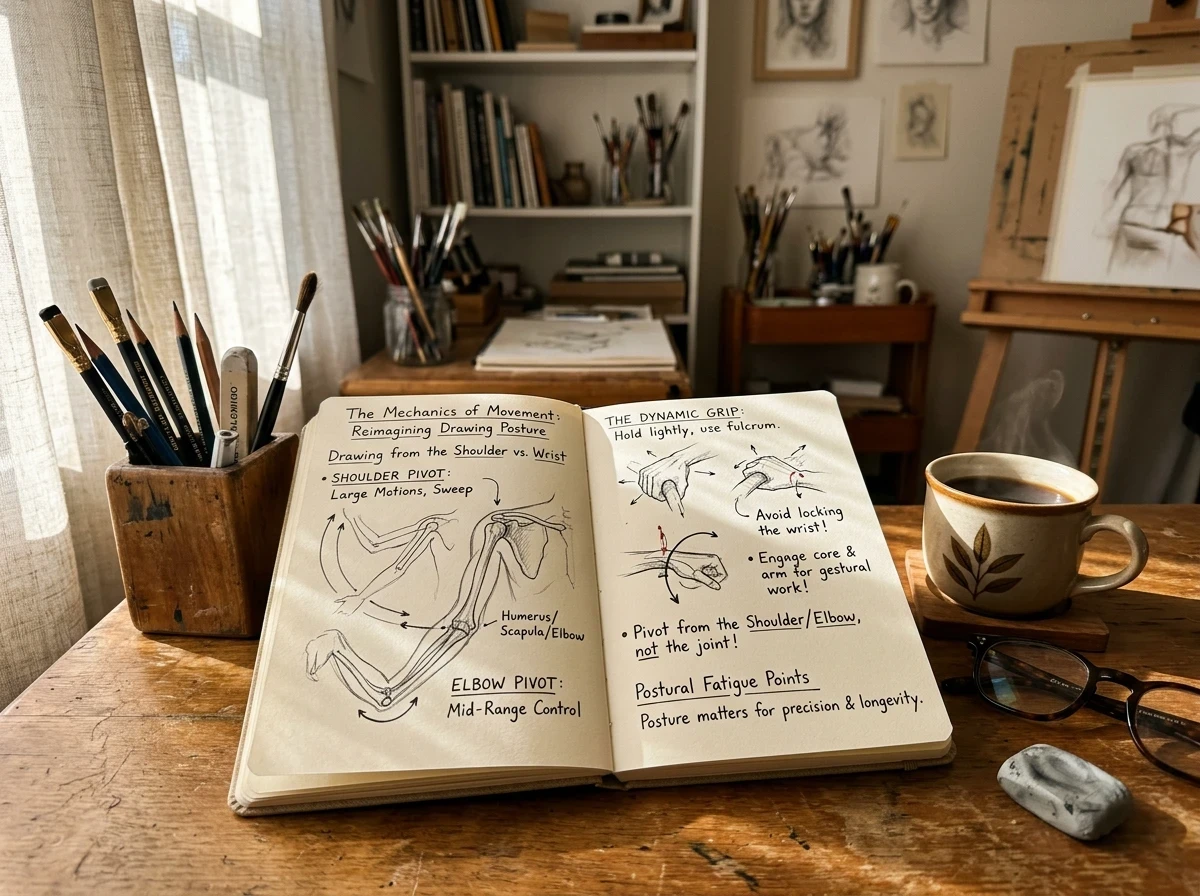 The Mechanics of Movement:
Reimagining Drawing Posture
Drawing from the Shoulder vs. Wrist
• SHOULDER PIVOT:
Large Motions, Sweep
Humerus/
Scapula/Elbow
ELBOW PIVOT:
Mid-Range Control
THE DYNAMIC GRIP:
Hold lightly, use fulcrum.
Avoid locking
the wrist!
• Engage core &
arm for gestural
work!
• Pivot from the Shoulder/Elbow,
not the joint!
Postural Fatigue Points
Posture matters for precision & longevity.